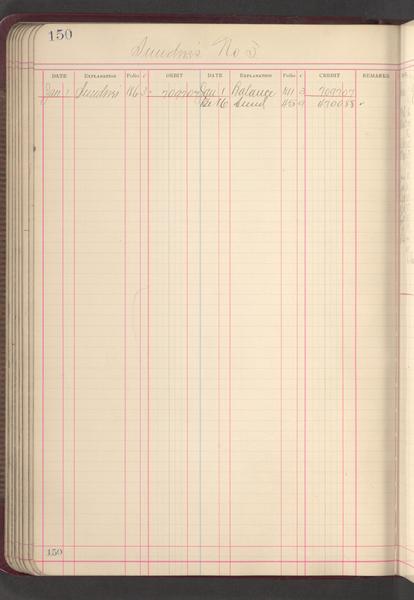 150
Sundries No 3
DATE EXPLANATION Folio ✓ DEBIT DATE EXPLANATION Folio ✓ CREDIT REMARKS
Jan 1 Sundries 709707 Jan 1 Balance 709707
16 Sund 470088 ✓
150